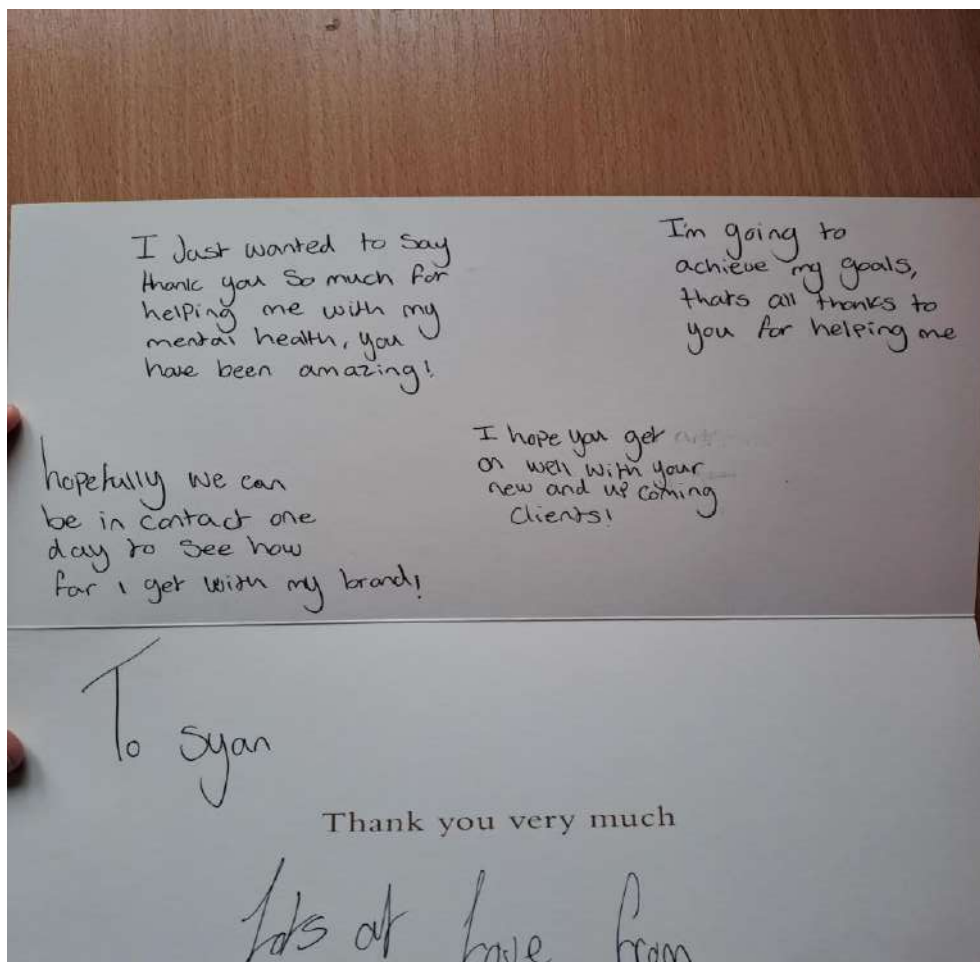 I Just wanted to say
thank you so much for
helping me with my
mental health, you
have been amazing!
I'm going to
achieve my goals,
thats all thanks to
you for helping me
hopefully we can
be in contact one
day to see how
far i get with my brand!
I hope you get
on well with your
new and up coming
clients!
To Syan
Thank you very much
Lots of love from